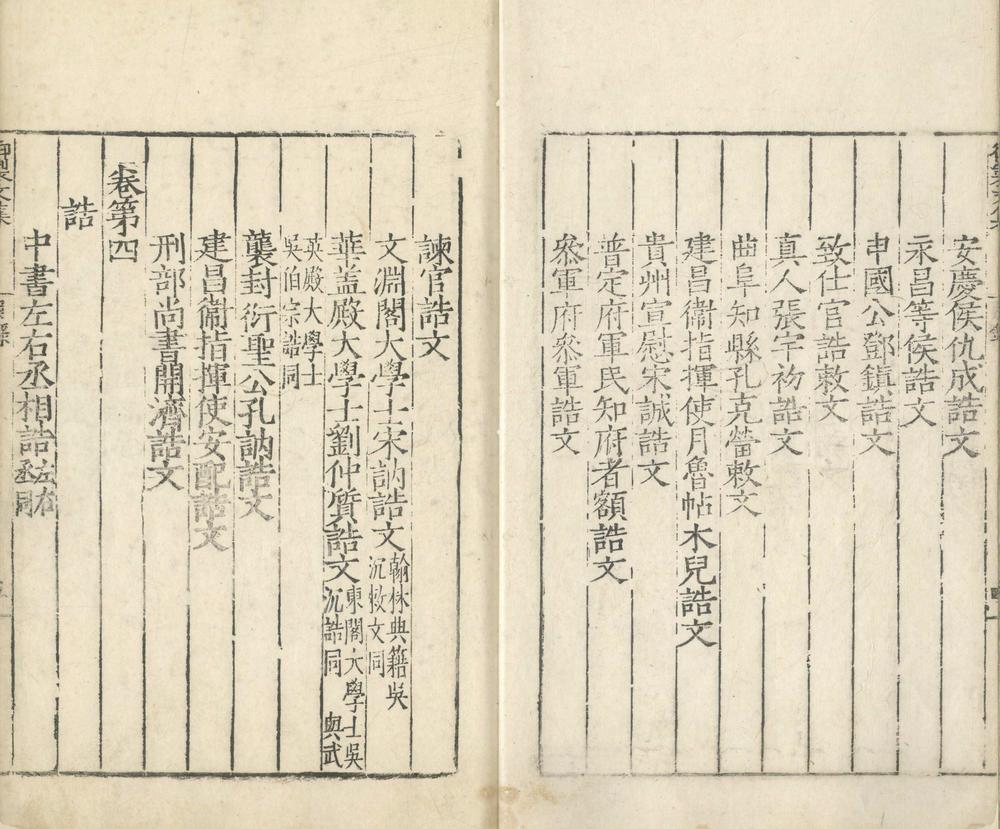 安慶侯仇成誥文
永昌等侯誥文
申國公鄧鎮誥文
致仕官誥敕文
真人張宇初誥文
曲阜知縣孔克㽦敕文
建昌衞指揮使月魯帖木兒誥文
貴州宣慰宋誠誥文
普定府軍民知府者額誥文
叅軍府叅軍誥文
諫官誥文
文淵閣大學士宋訥誥文翰林典籍吳沉敕文同
華盖殿大學士劉仲質誥文東閣大學士吳沉誥同與武
英殿大學士吳伯宗誥同
襲封衍聖公孔訥誥文
建昌衞指揮使安配誥文
刑部尚書開濟誥文
卷第四
誥
中書左右丞相誥左右丞同
御製文集